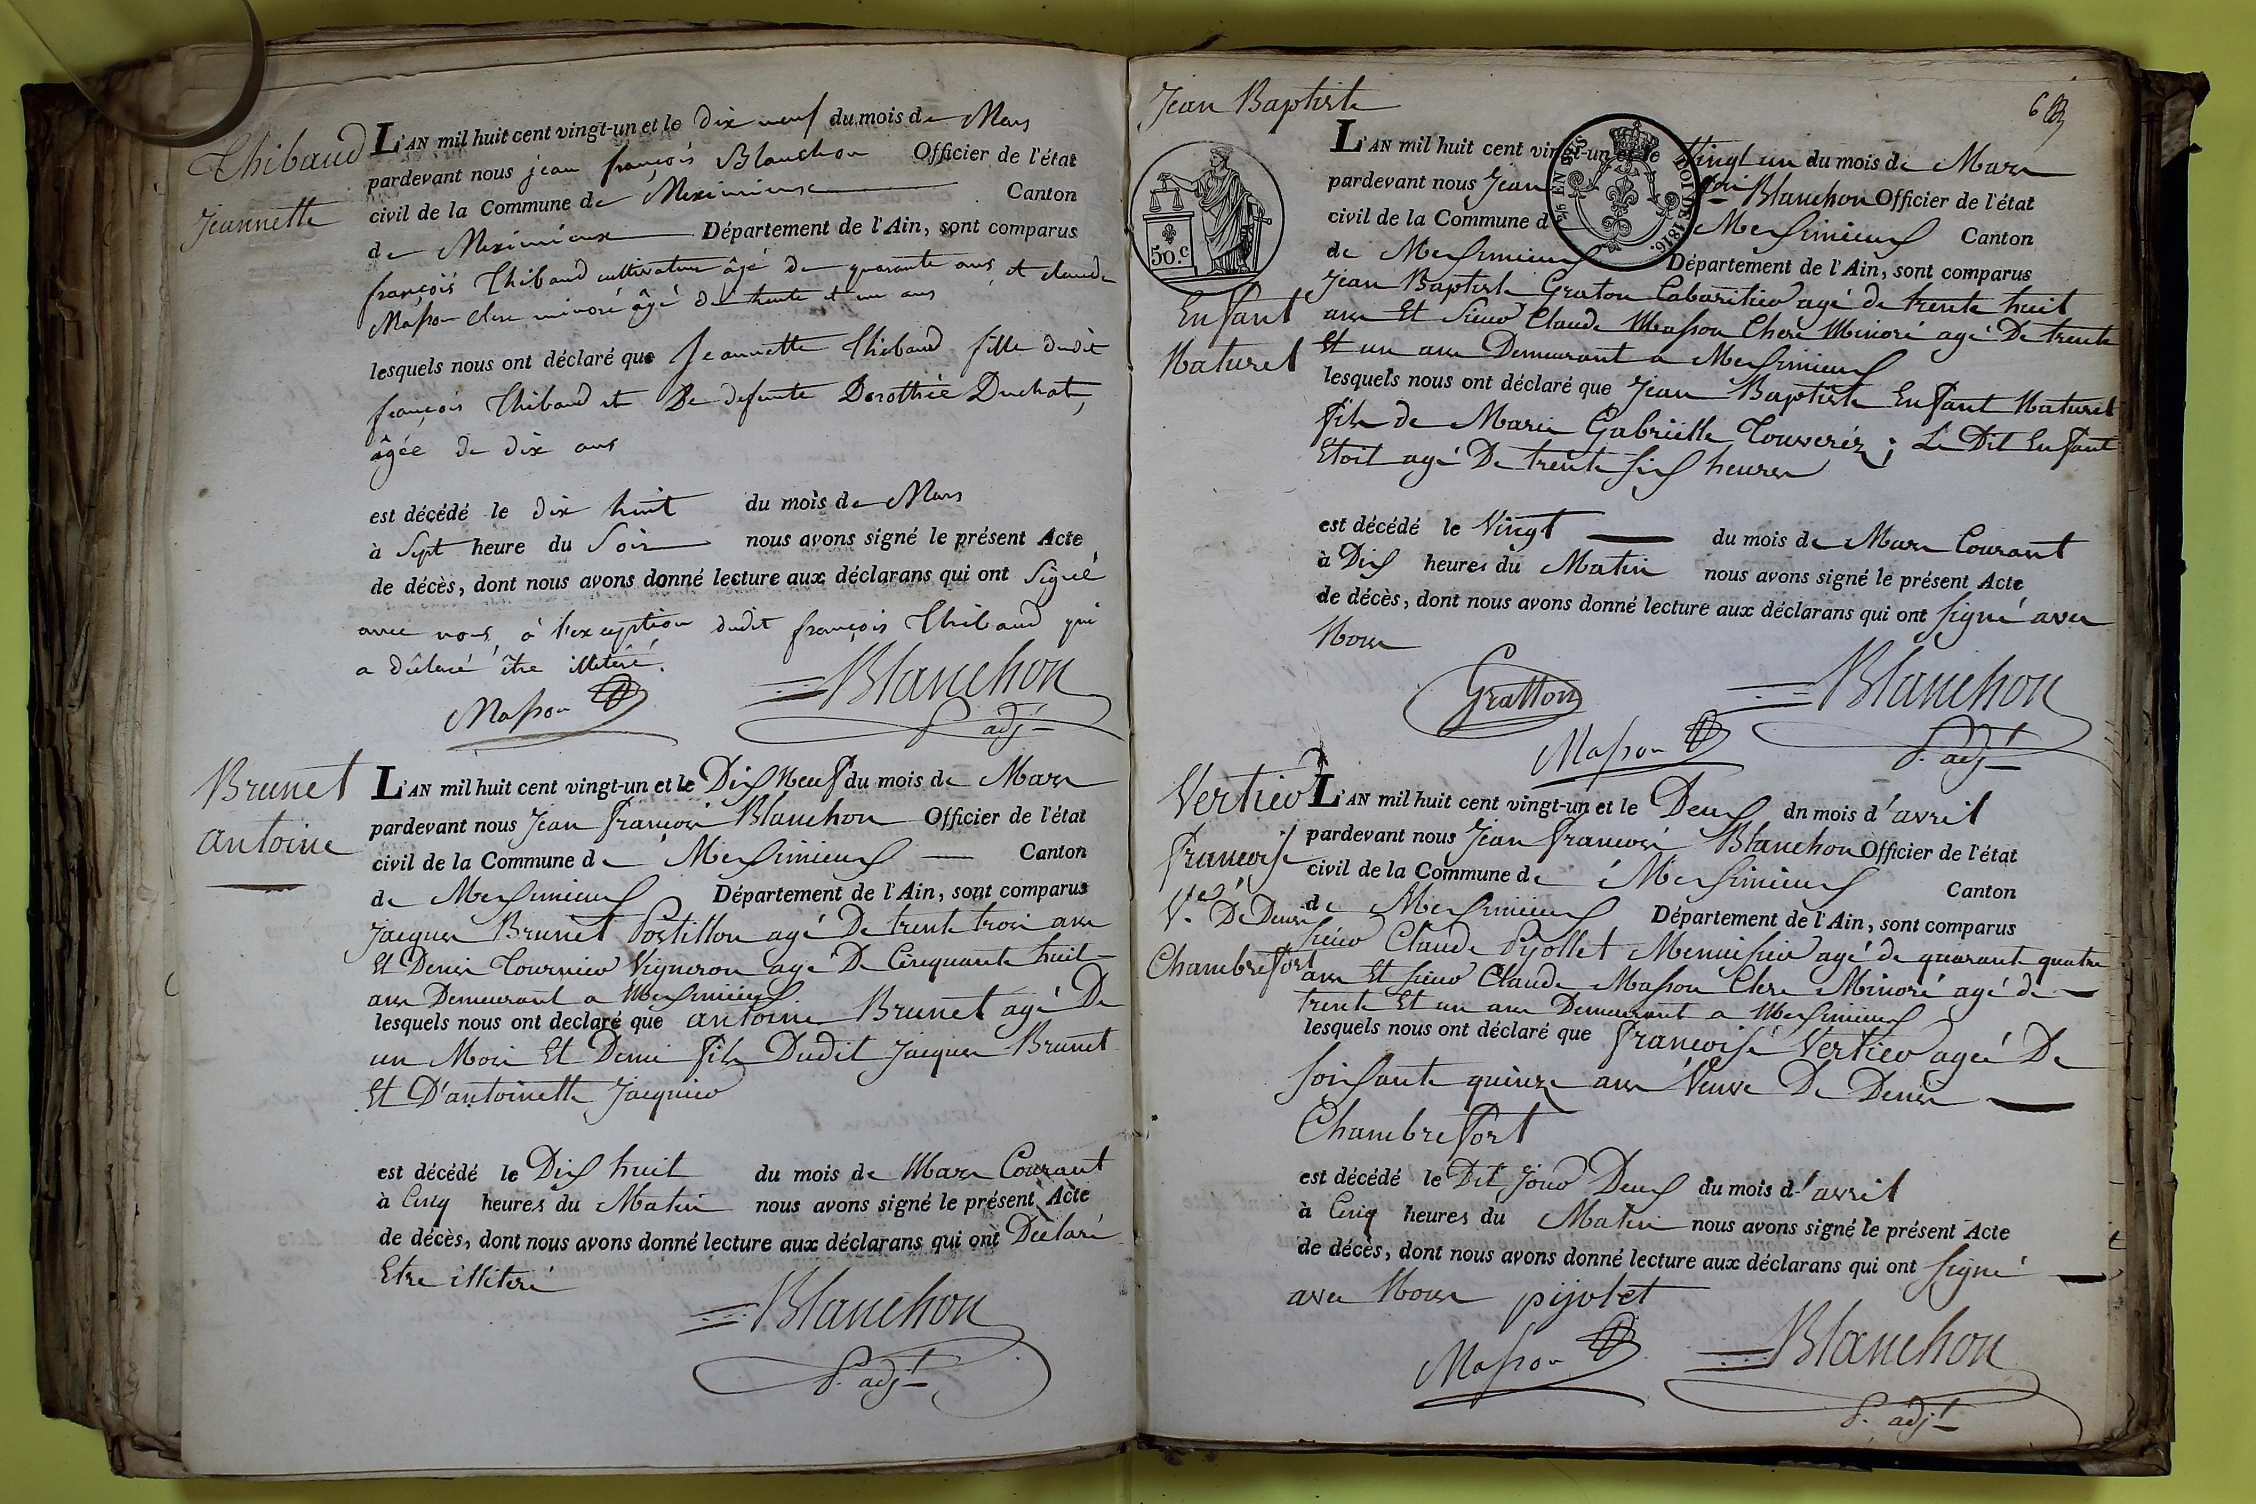 Thibaud
Jeannette
L'AN mil huit cent vingt-un et le dix neuf du mois de Mars
pardevant nous jean françois Blanchon Officier de l'état
civil de la Commune de Meximieux Canton
de Meximieux Département de l'Ain, sont comparus
françois Thibaud cultivateur âgé de quarante ans et claude
Masson clerc minoré âgé de trente et un ans
lesquels nous ont déclaré que Jeannette Thibaud fille dudit
françois Thibaud et De defunte Dorothée Duchat,
âgée de dix ans
est décédé le dix huit du mois de Mars
à Sept heure du Soir nous avons signé le présent Acte
de décès, dont nous avons donné lecture aux déclarans qui ont Signé
avec nous, à l'exception dudit françois Thibaud qui
a déclaré être illiteré.
Masson
Blanchon
adjt
Brunet
antoine
L'AN mil huit cent vingt-un et le Dix Neuf du mois de Mars
pardevant nous Jean francois Blanchon Officier de l'état
civil de la Commune de Mexsimieux Canton
de Mexsimieux Département de l'Ain, sont comparus
Jacques Brunet Postillon agé De trente trois ans
Et Denis Tournier Vigneron agé De Cinquante huit
ans Demeurant a Mexsimieux
lesquels nous ont declaré que antoine Brunet agé De
un Mois Et Demi fils Dudit Jacques Brunet
Et D'antoinette Jacquier
est décédé le Dix huit du mois de Mars Courant
à Cinq heures du Matin nous avons signé le présent Acte
de décès, dont nous avons donné lecture aux déclarans qui ont Déclaré
Etre illiteré
Blanchon
adjt
Jean Baptiste
Enfant
Naturel
6
50.c
EN SUS
LOI DE 1816.
L'AN mil huit cent vingt-un et le Vingt un du mois de Mars
pardevant nous Jean Blanchon Officier de l'état
civil de la Commune d Mexsimieux Canton
de Mexsimieux Département de l'Ain, sont comparus
Jean Baptiste Graton Cabaritier agé de trente huit
ans Et Sieur Claude Masson Clerc Minoré agé De trente
Et un ans Demeurant a Mexsimieux
lesquels nous ont déclaré que Jean Baptiste Enfant Naturel
fils de Marie Gabrielle Touverez; Le Dit Enfant
Etoit agé De trente six heures
est décédé le Vingt du mois de Mars Courant
à Dix heures du Matin nous avons signé le présent Acte
de décès, dont nous avons donné lecture aux déclarans qui ont signé avec
Nous
Gratton
Blanchon
Masson
adjt
Vertier
francoise
Ve. De Denis
Chambrefort
L'AN mil huit cent vingt-un et le Deux dn mois d'avril
pardevant nous Jean francois Blanchon Officier de l'état
civil de la Commune de Mexsimieux Canton
de Mexsimieux Département de l'Ain, sont comparus
Sieur Claude Pijollet Menuisier agé de quarante quatre
ans Et sieur Claude Masson Clerc Minoré agé de
trente Et un ans Demeurant a Mexsimieux
lesquels nous ont déclaré que francoise Vertier agée De
soixante quinze ans Veuve De Denis
Chambrefort
est décédé le Dit Jour Deux du mois d'avril
à Cinq heures du Matin nous avons signé le présent Acte
de décès, dont nous avons donné lecture aux déclarans qui ont signé
avec Nous pijolet
Masson
Blanchon
adjt